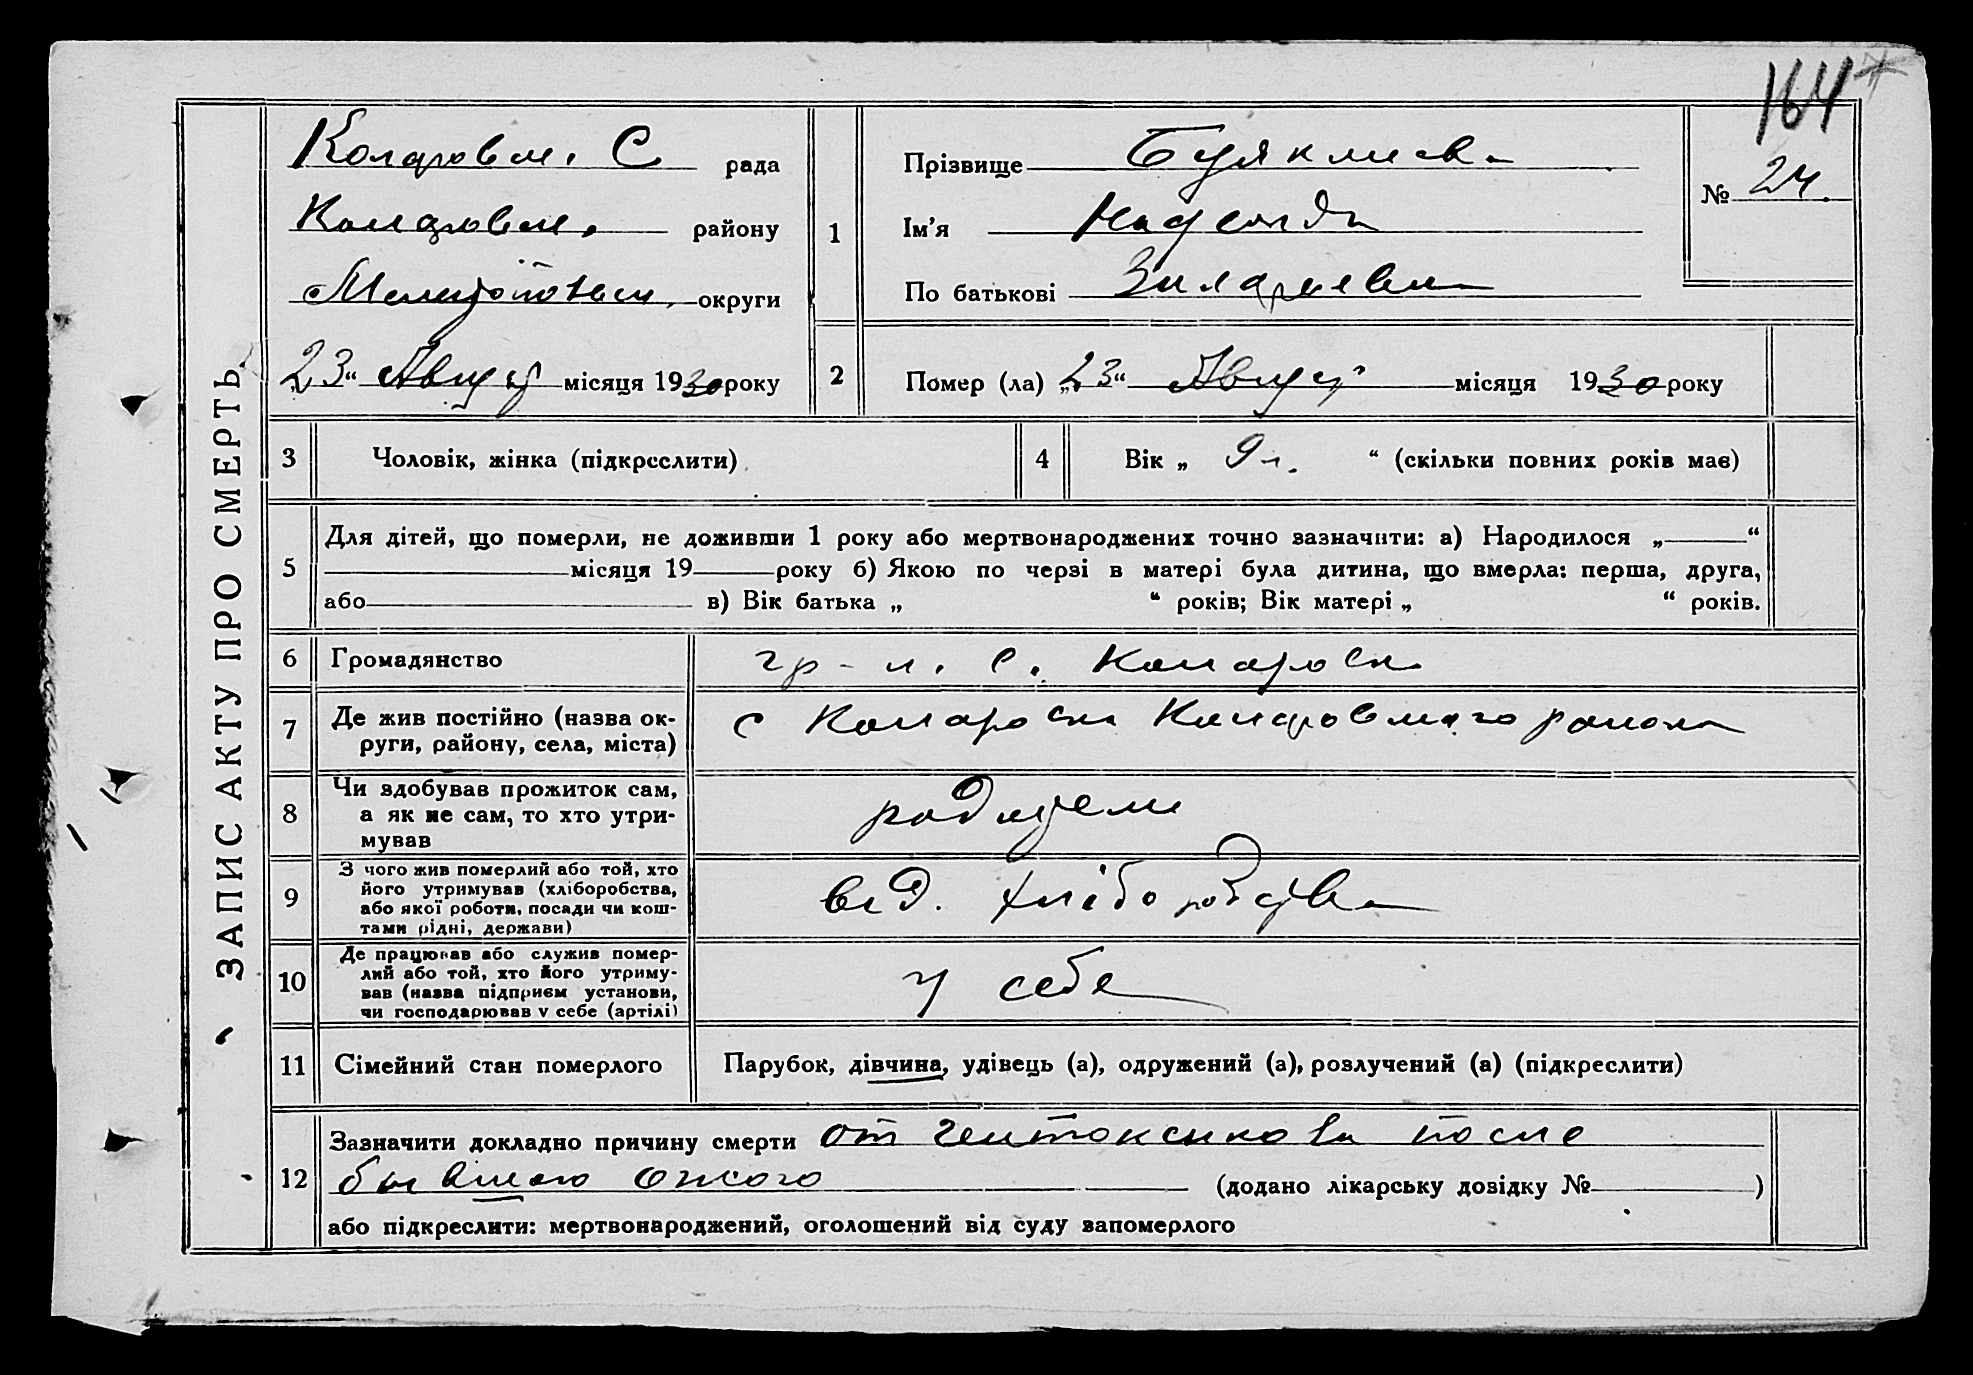 164
ЗАПИС АКТУ ПРО СМЕРТЬ
Коларовск. С рада
Коларовск. району
Мелитопольск. округи
23 “ Август місяця 1930 року
1
Прізвище
Ім'я Надежда
По батькові
№ 24.
2
Помер (ла) „23“ Август місяця 1930 року
3 Чоловік, жінка (підкреслити)
4 Вік „ 9 л. “ (скільки повних років має)
5
Для дітей, що померли, не доживши 1 року або мертвонароджених точно зазначити: а) Народилося „ “
місяця 19 року б) Якою по черзі в матері була дитина, що вмерла: перша, друга,
або в) Вік батька „ “ років; Вік матері „ “ років.
6 Громадянство гр-н. с. Коларовки
7 Де жив постійно (назва ок-
руги, району, села, міста)
с Коларовки Коларовского района
8 Чи здобував прожиток сам,
а як не сам, то хто утри-
мував
родители
9 З чого жив померлий або той, хто
його утримував (хліборобства,
або якої роботи, посади чи кош-
тами рідні, держави)
від. хліборобства
10 Де працював або служив помер-
лий або той, хто його утриму-
вав (назва підприєм установи,
чи господарював у себе (артілі)
у себе
11 Сімейний стан померлого Парубок, дівчина, удівець (а), одружений (а), розлучений (а) (підкреслити)
12
Зазначити докладно причину смерти от после
бывшего ожога (додано лікарську довідку № )
або підкреслити: мертвонароджений, оголошений від суду запомерлого